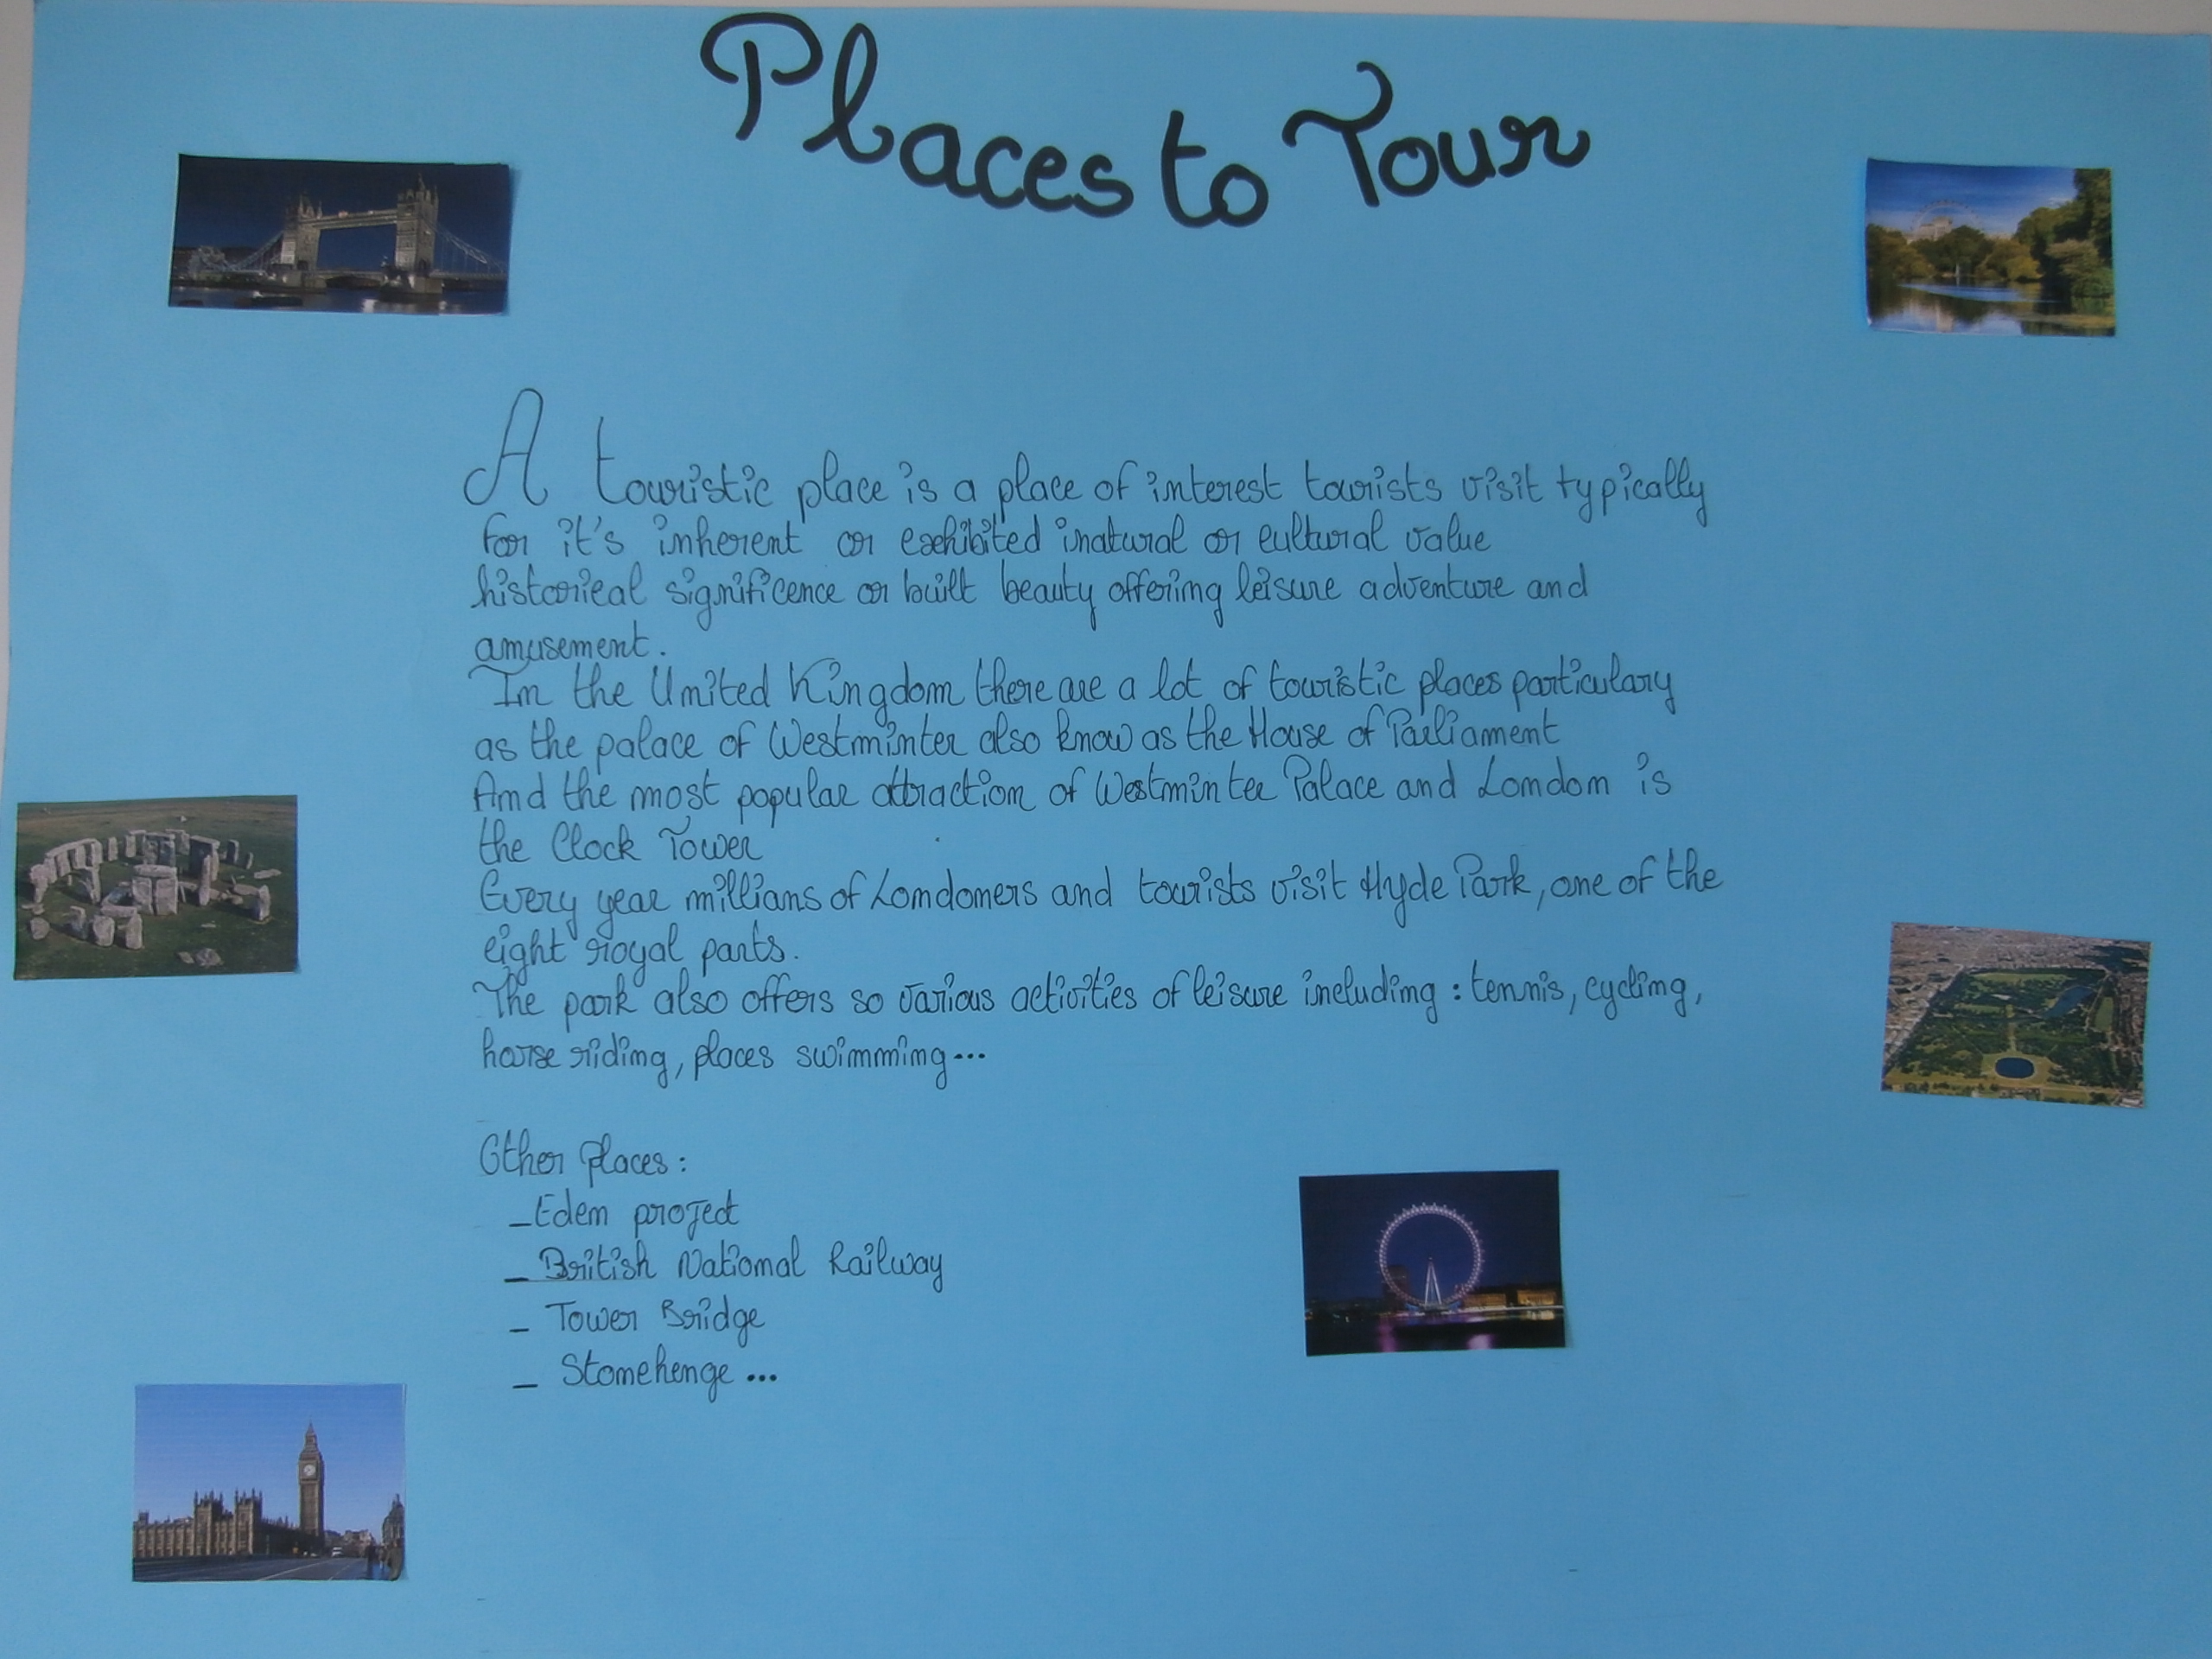 Places to Tour
A touristic place is a place of interest tourists visit typically
for it's inherent or exhibited inatural or cultural value
historical significence or built beauty offering leisure adventure and
amusement.
In the United Kingdom there are a lot of touristic places particulary
as the palace of Westminter also know as the House of Parliament
And the most popular attraction of Westminter Palace and London is
the Clock Tower
Every year millians of Londoners and tourists visit Hyde Park, one of the
eight royal parts.
The park also offers so various activities of leisure including : tennis, cycling,
horse riding, places swimming...
Other Places :
_ Eden project
_ British National Railway
_ Tower Bridge
_ Stonehenge ...